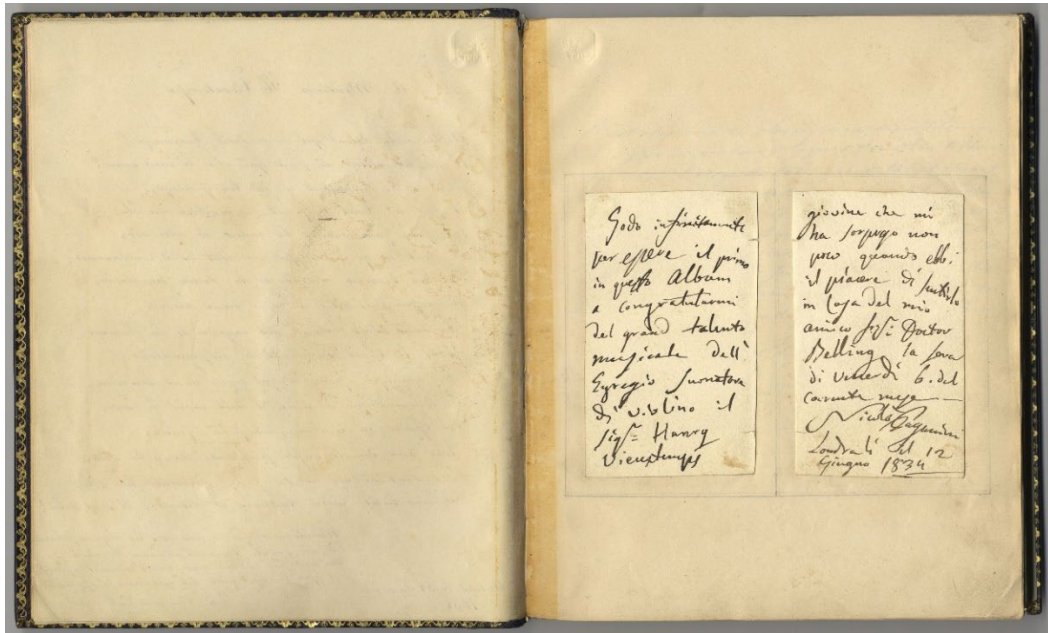 Godo infinitamente
per essere il primo
in questo Album
a congratularmi
del grand talento
musicale dell'
Egregio Suonatore
di violino il
Sigr. Henry
Vieuxtemps
giovine che mi
ha sorpreso non
poco quando ebbi
il piacere di sentirlo
in casa del mio
amico Doctor
Belling la sera
di Venerdì 6. del
corrente mese
Nicolò Paganini
Londra li 12
Giugno 1834